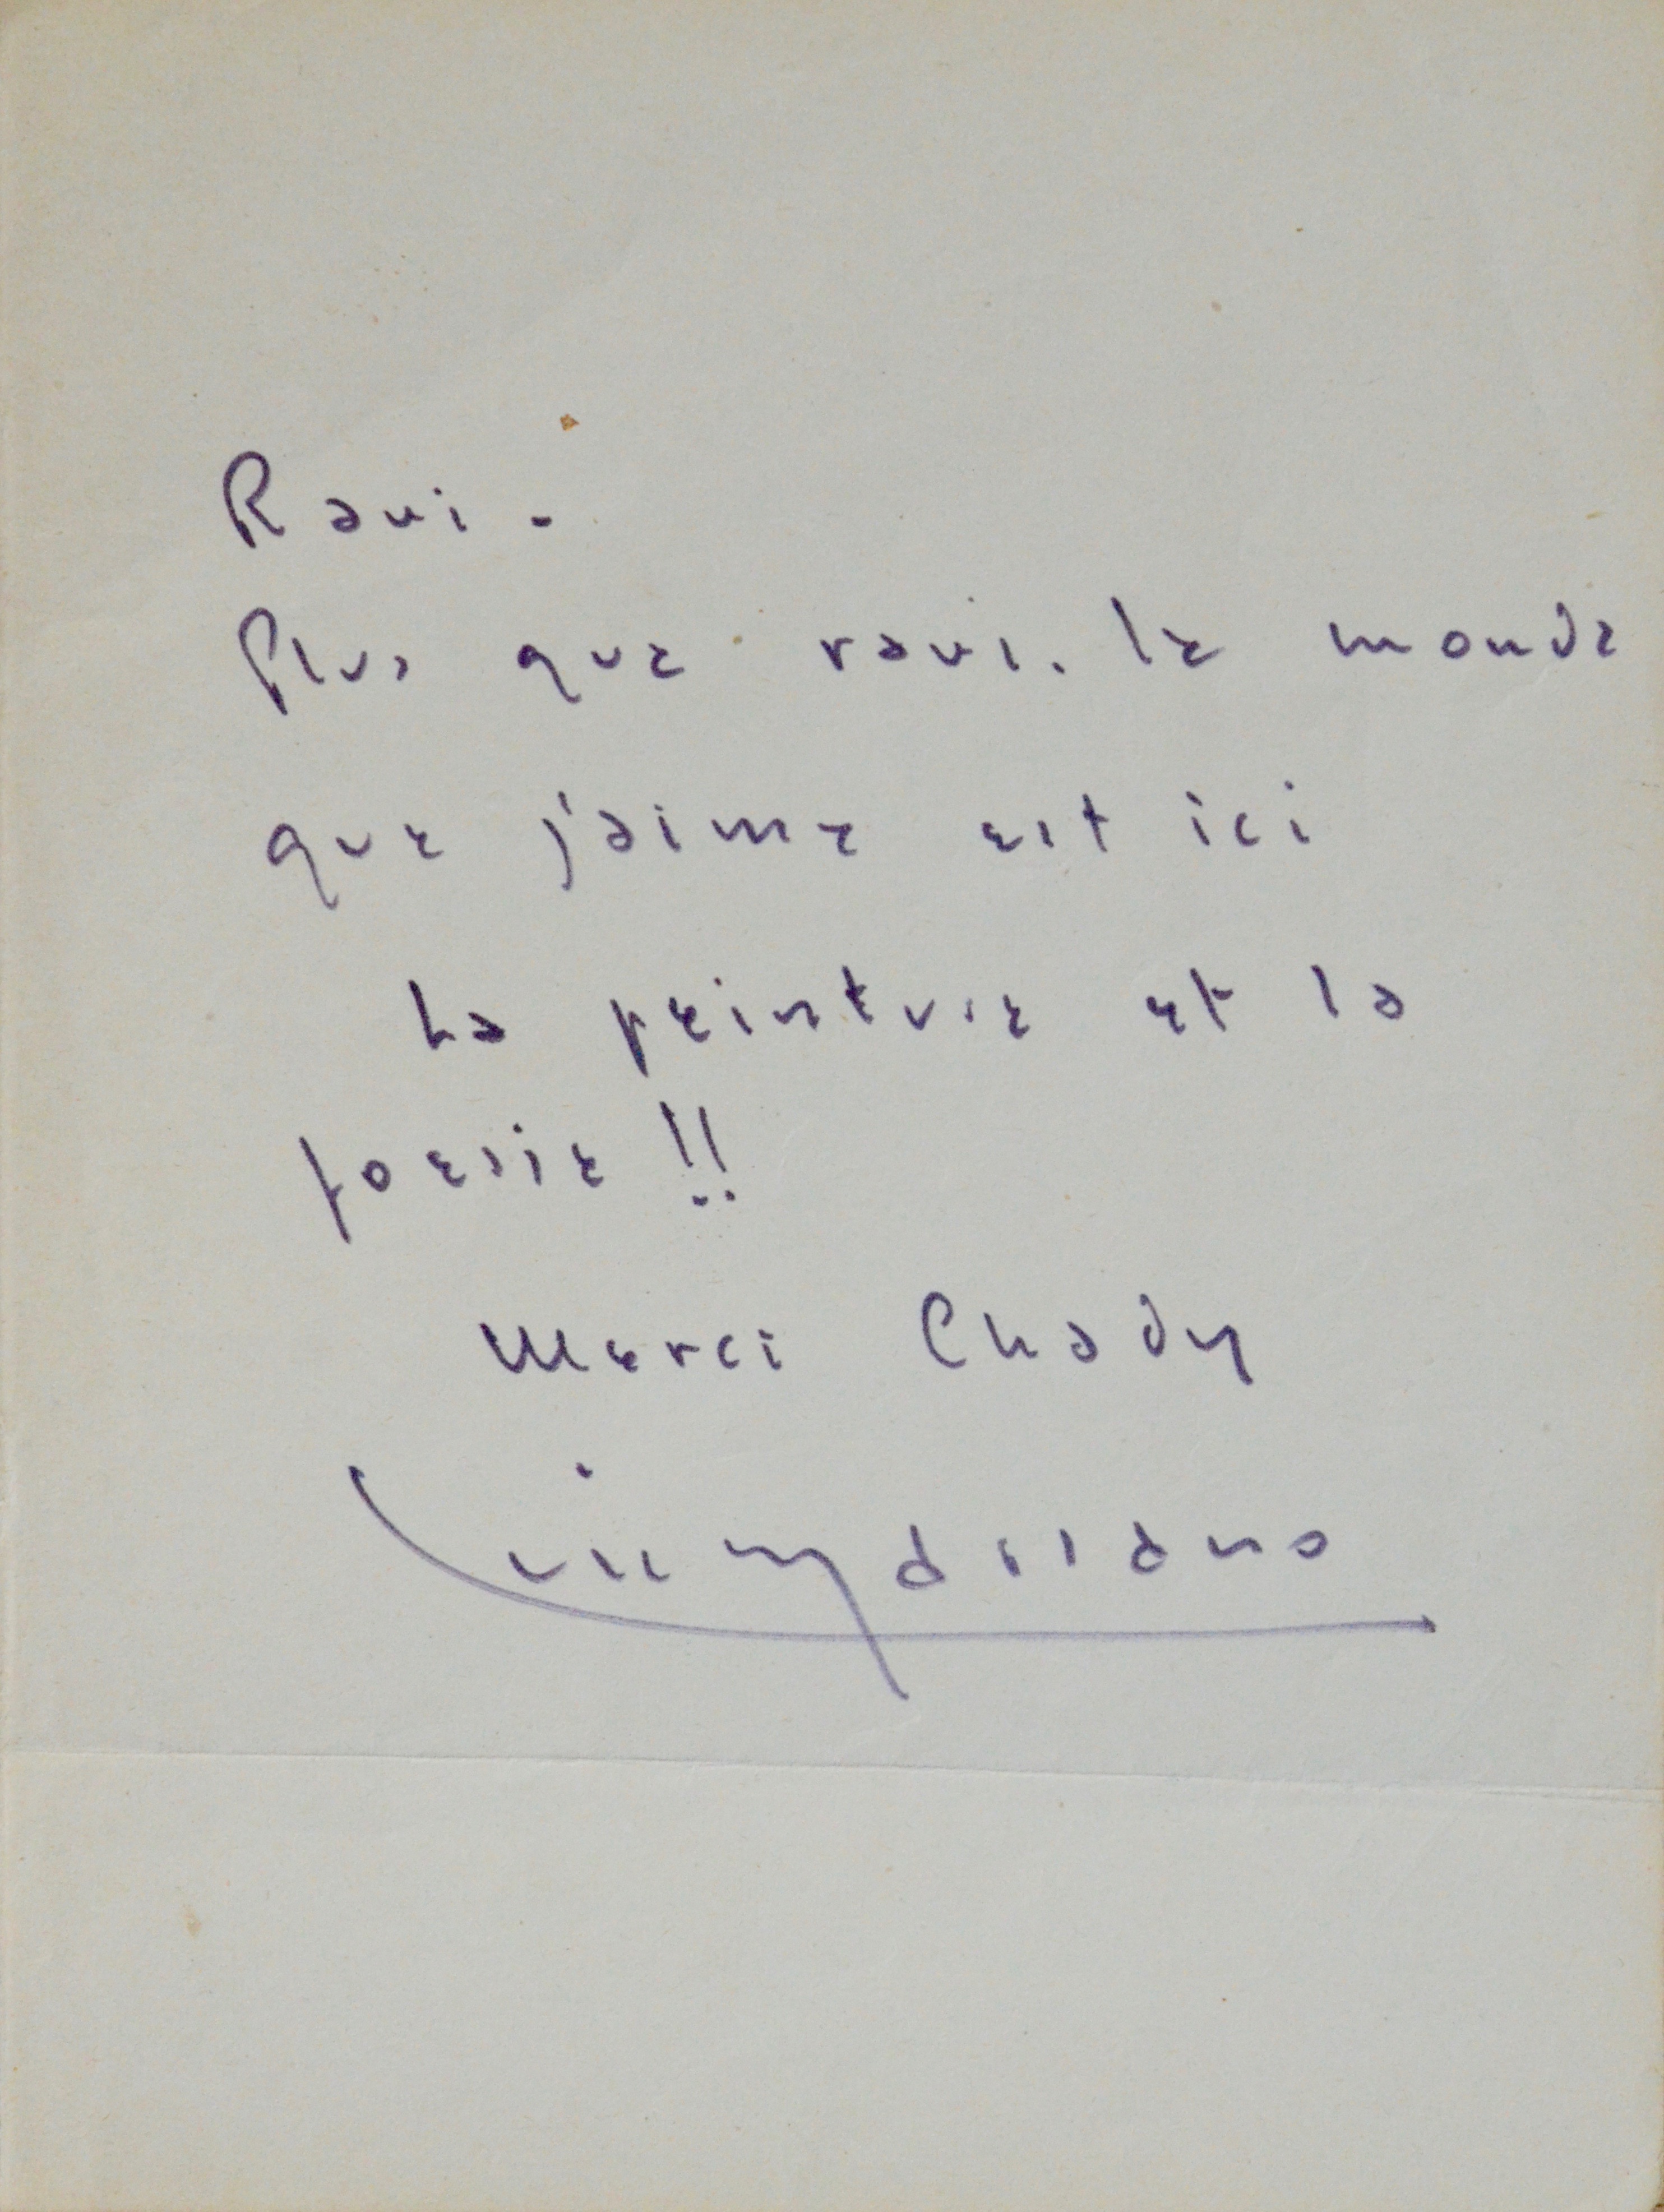 Ravi -
Plus que ravi. le monde
que j'aime est ici
La peinture et la
poesie !!
Merci Chady